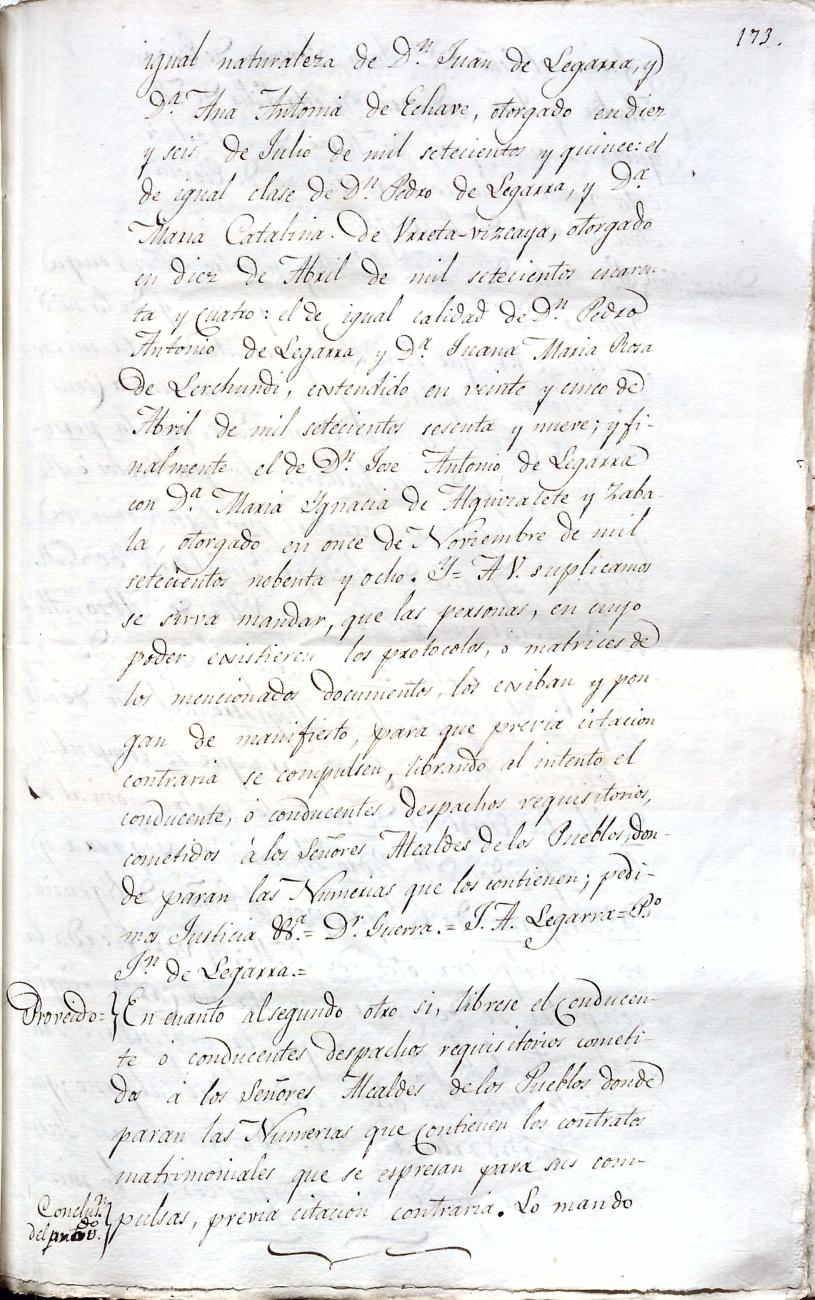 173.
igual naturaleza de D.n Juan de Legarra, y
D.a Ana Antonia de Echave, otorgado en diez
y seis de Julio de mil setecientos y quince: el
de igual clase de D.n Pedro de Legarra, y D.a
Maria Catalina de Urreta-vizcaya, otorgado
en diez de Abril de mil setecientos cuaren-
ta y cuatro: el de igual calidad de D.n Pedro
Antonio de Legarra, y D.a Juana Maria Rosa
de Lerchundi, extendido en veinte y cinco de
Abril de mil setecientos sesenta y nueve; y fi-
nalmente el de D.n Jose Antonio de Legarra
con D.a Maria Ygnacia de Alquizalete y Zaba-
la, otorgado en once de Noviembre de mil
setecientos nobenta y ocho. Y= A V. suplicamos
se sirva mandar, que las personas, en cuyo
poder existieren los protocolos, o matrices de
los mencionados documentos, los exiban y pon-
gan de manifiesto, para que previa citacion
contraria se compulsen, librando al intento el
conducente, o conducentes despachos requisitorios,
cometidos á los Señores Alcaldes de los Pueblos, don-
de paran las Numerias que los contienen; pedi-
mos Justicia &.a = D.r Guerra.= J. A. Legarra= P.o
J.n de Legarra.=
Proveido= } En cuanto al segundo otro si, librese el conducen-
te ó conducentes despachos requisitorios cometi-
dos á los Señores Alcaldes de los Pueblos donde
paran las Numerias que contienen los contratos
matrimoniales que se espresan para sus com-
pulsas, previa citacion contraria. Lo mando